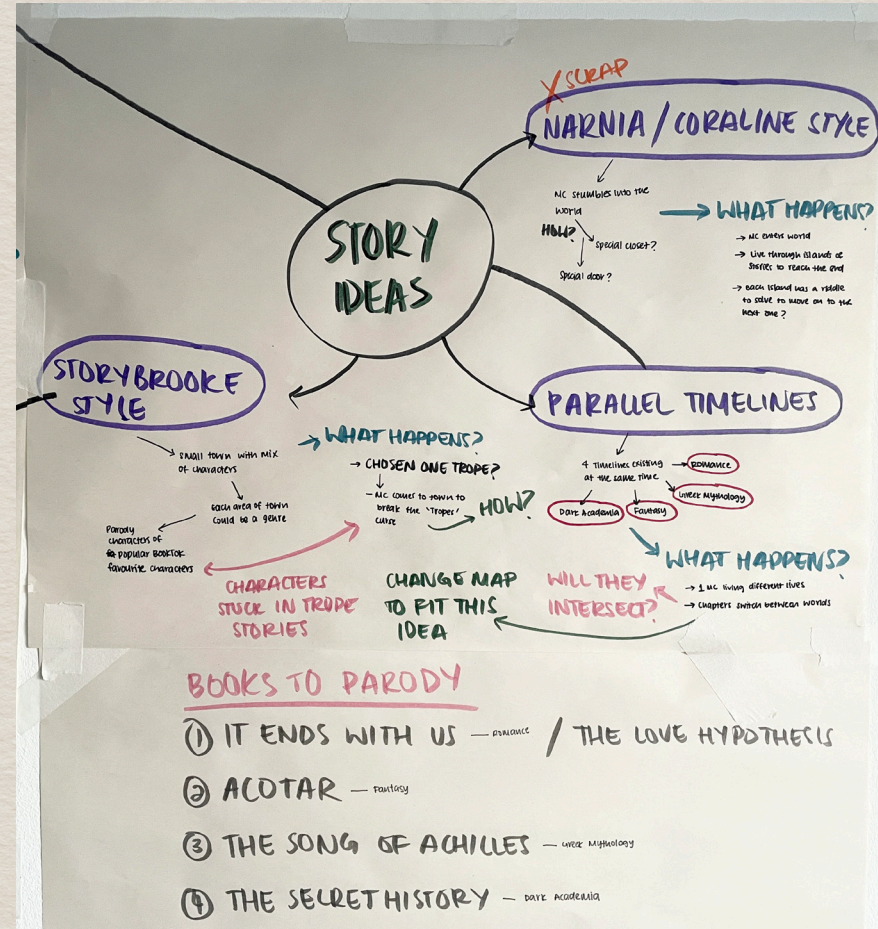 X SCRAP
NARNIA / CORALINE STYLE
MC stumbles into the
world
HOW?
Special closet?
Special door?
WHAT HAPPENS?
→ MC enters world
→ Live through islands of
stories to reach the end
→ Each island has a riddle
to solve to move on to the
next one?
STORY
IDEAS
STORYBROOKE
STYLE
small town with mix
of characters
Each area of town
could be a genre
Parody
characters of
popular BookTok
favourite characters
WHAT HAPPENS?
→ CHOSEN ONE TROPE?
- MC comes to town to
break the 'Tropes'
curse
HOW?
CHARACTERS
STUCK IN TROPE
STORIES
PARALLEL TIMELINES
4 Timelines existing
at the same time
Romance
Greek Mythology
Dark Academia
Fantasy
WHAT HAPPENS?
→ 1 MC living different lives
→ Chapters switch between worlds
WILL THEY
INTERSECT?
CHANGE MAP
TO FIT THIS
IDEA
BOOKS TO PARODY
① IT ENDS WITH US — Romance / THE LOVE HYPOTHESIS
② ACOTAR — Fantasy
③ THE SONG OF ACHILLES — Greek Mythology
④ THE SECRET HISTORY — Dark Academia